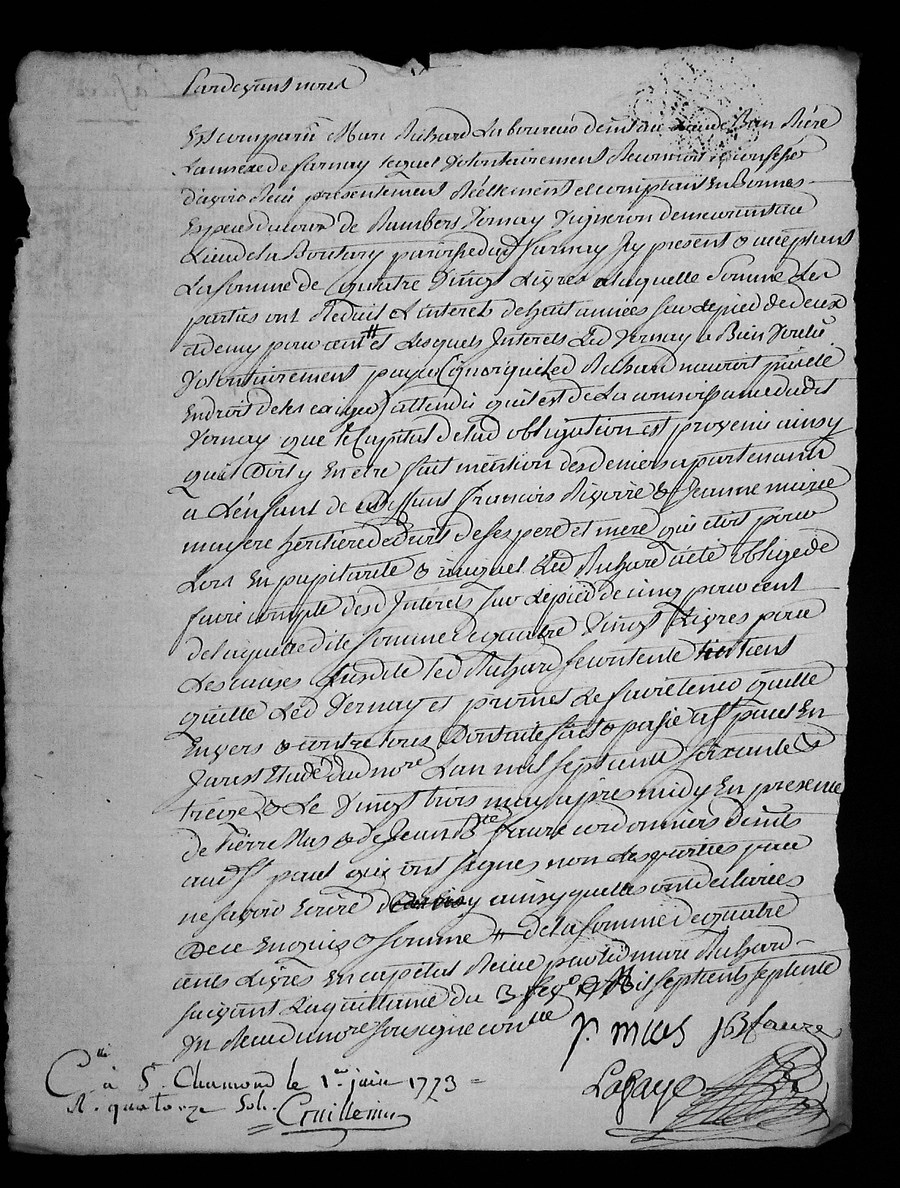 Pardevant nores
Est comparu Marc Richard Laboureur demt au Lieu de Bin Riére
Lannexe de farnay lequel volontairement Reconnoit & confesse
d'avoir Recu presentement Réellement et comptant En Bonnes
Especes du cour de Rambert Vernay Vigneron demeurant au
Lieu de La Boutary paroisse dud farnay Jcy present & acceptant
La somme de quatre Vingt Livres a laquelle Somme Les
parties ont Reduit L interets de huit années sur le pied de deux
et demy pour cent tt et Lesquels Interets Led Vernay a Bien Voulu
Volontairement payer (quoique Led Richard n'auroit pas été
En droit de les exiger) attendu qu'il est de La connoissance dudit
Vernay que le Capital de lad obligation est provenu ainsy
qu'il Doit y En etre fait mention des deniers apartenant
a L'enfant de deffunt francois Rigoire & Jeanne marie
mayere heritiere de droit de ses pere et mere qui etoit pour
Lors En pupilarité & auquel Led Richard a eté obligé de
faire compte des Interets sur le pied de cinq pour cent
de laquelle dite somme de quatre Vingt Livres pour
Les causes susdite led Richard se contente tient
quitte Led Vernay et promet Le faire tenir quitte
Envers & contre tous Dont acte fait & passé a St paul En
Jarest Etude dud nore Lan mil sept cent soixante &
treize & Le Vingt trois may apres midy En presence
de Pierre Mas & de Jean Bte faure cordonniers demts
aud St paul qui ont signes non les parties pour
ne savoir Ecrire ainsy quelles ont declarées
De ce Enquis & somme tt de la somme de quatre
cents Livres En capital Reçue par led marc Richard
suivant La quittance du 3 fevr Mil sept cent septente
Un Recu du nore soussigné con
P. mas JB faure
Lafaye
C.lle à St. Chamond le 1er juin 1773
R. quatorze sols.